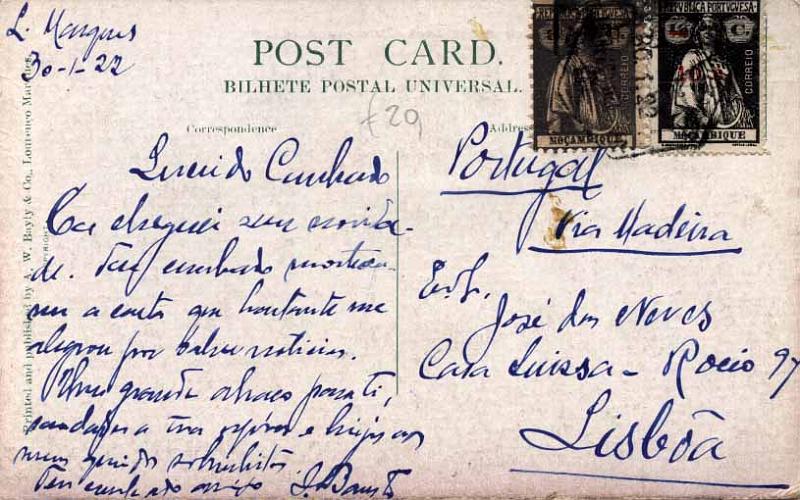 L. Marques
30-1-22
POST CARD.
BILHETE POSTAL UNIVERSAL.
£20
Correspondence
Address
REPUBLICA PORTUGUESA
CORREIO
MOÇAMBIQUE
REPUBLICA PORTUGUESA
C.
10
CORREIO
MOÇAMBIQUE
Printed and published by A. W. Bayly & Co., Lourenco Marques.
COPYRIGHT
Querido Cunhado
Cá cheguei sem novida-
de. Teu cunhado mostrou-
me a carta que bastante me
alegrou por saber noticias.
Um grande abraço para ti,
saudades a tua esposa e beijos aos
meus queridos sobrinhitos.
Teu cunhado amigo
Portugal
Via Madeira
José das Neves
Casa Luissa - Rocio 97
Lisbôa